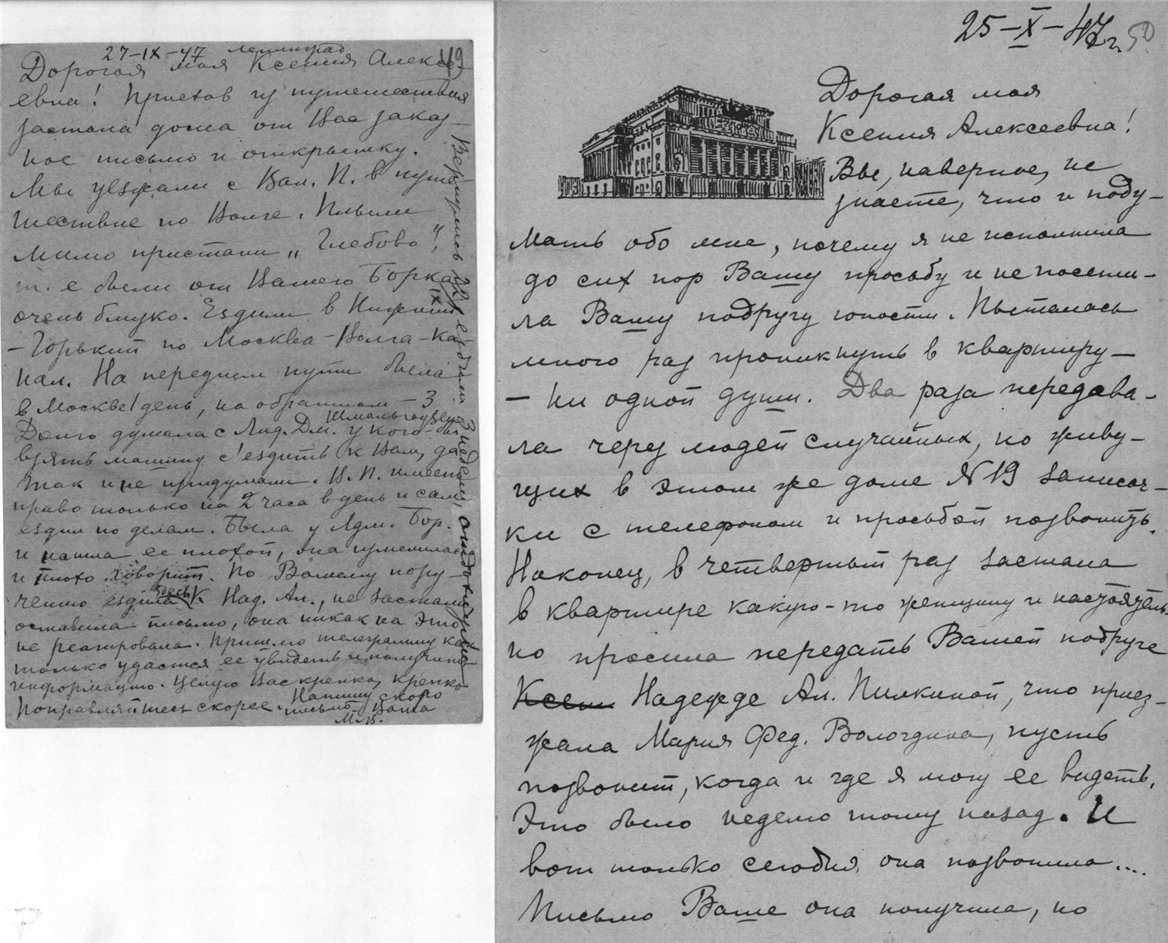 27-IX-47 Ленинград
49
Дорогая моя Ксения Алексе-
евна! Приехав из путешествия
застала дома от Вас заказ-
ное письмо и открытку.
Мы уезжали с Вал. П. в путе-
шествие по Волге. Плыли
мимо пристани „Глебово",
т. е были от Вашего Борка
очень близко. Ездили в Нижний
- Горький по Москва-Волга-ка-
нал. На переднем пути была
в Москве 1 день, на обратном - 3
Долго думала с Лид. Дм. Шмальгаузен у кого-бы
взять машину съездить к Вам, да
так и не придумали. В. П. имеет
право только на 2 часа в день и сам
ездил по делам. Была у Лдм. Бор.
и нашла ее плохой, она изменилась
и плохо говорит. По Вашему пору-
чению ездила здесь к Над. Ал., не застала
оставила письмо, она никак на это
не реагировала. Пришлю телеграмму как
только удастся ее увидеть и получить
информацию. Целую Вас крепко, крепко
Поправляйтесь скорее. Напишу скоро
письмо. Ваша
М.В.
Вернулись IX
25-X-47 г.
50
Дорогая моя
Ксения Алексеевна!
Вы, наверное, не
знаете, что и поду-
мать обо мне, почему я не исполнила
до сих пор Вашу просьбу и не посети-
ла Вашу подругу юности. Пыталась
много раз проникнуть в квартиру -
- ни одной души. Два раза передава-
ла через людей случайных, но живу-
щих в этом же доме №19 записоч-
ки с телефоном и просьбой позвонить.
Наконец, в четвертый раз застала
в квартире какую-то женщину и настоятель
но просила передать Вашей подруге
Ксени Надежде Ал. Пилкиной, что приез-
жала Мария Фед. Вологдина, пусть
позвонит, когда и где я могу ее видеть.
Это было неделю тому назад. И
вот только сегодня она позвонила....
Письмо Ваше она получила, но